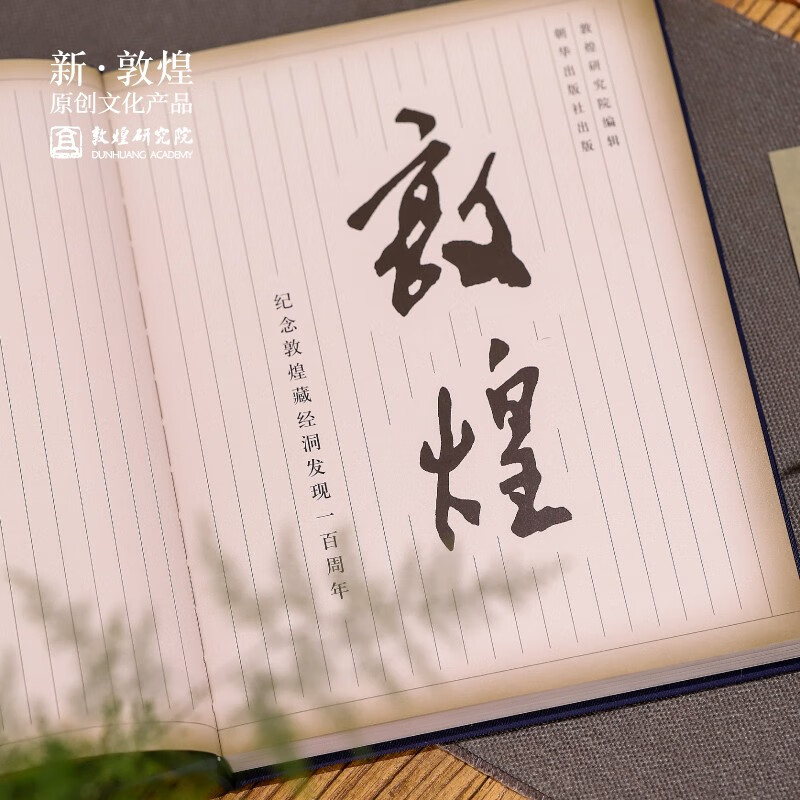 新·敦煌
原创文化产品
敦煌研究院
DUNHUANG ACADEMY
敦煌研究院编辑
朝华出版社出版
敦煌
纪念敦煌藏经洞发现一百周年